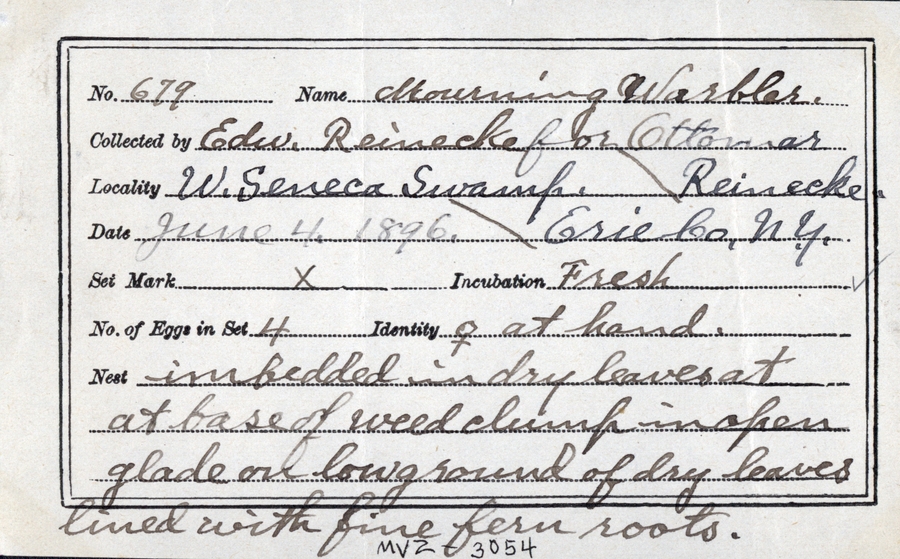 No. 679 Name Mourning Warbler.
Collected by Edw. Reinecke for Ottomar
Locality W. Seneca Swamp. Reinecke.
Date June 4. 1896. Erie Co, N.Y.
Set Mark X Incubation Fresh
No. of Eggs in Set 4 Identity ♀ at hand.
Nest imbedded in dry leaves at
at base of weed clump in open
glade on low ground of dry leaves
lined with fine fern roots.
MVZ 3054